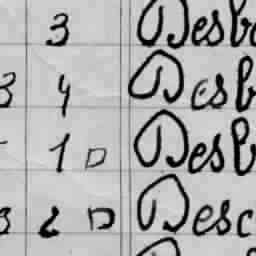 3 Desb
3 4 Desb
1 D Desb
3 2 D Desc